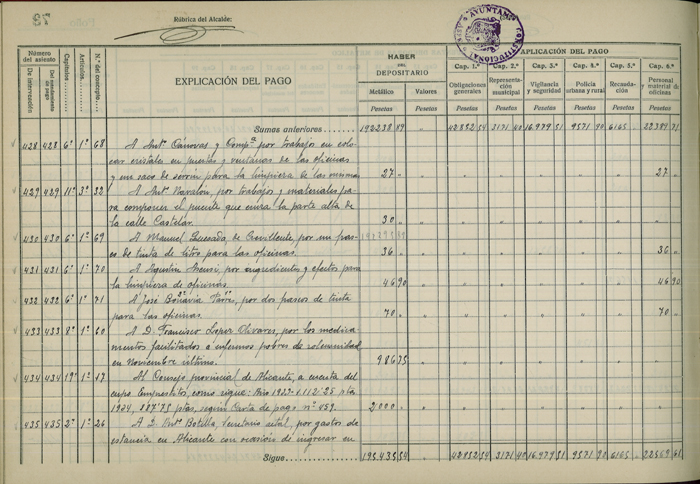 73
Rúbrica del Alcalde:
AYUNTAMIENTO CONSTITUCIONAL
Número del asiento
De intervención
Del mandamiento de pago
Capítulos
Artículos
N.º del concepto
EXPLICACIÓN DEL PAGO
HABER DEL DEPOSITARIO
Metálico
Valores
Pesetas
Pesetas
APLICACIÓN DEL PAGO
Cap. 1.º Obligaciones generales
Cap. 2.º Representación municipal
Cap. 3.º Vigilancia y seguridad
Cap. 4.º Policía urbana y rural
Cap. 5.º Recaudación
Cap. 6.º Personal y material de oficinas
Pesetas Pesetas Pesetas Pesetas Pesetas Pesetas
Sumas anteriores 192238 89 " 42852 54 3171 40 16.979 51 9571 90 6165 " 22389 71
428 428 6º 1º 68 A Antº Cánovas y Compª por trabajos en colo
car cristales en puertas y ventanas de las oficinas
y un saco de serrín para la limpieza de las mismas 27 " 27 "
429 429 11º 3º 32 A Antº Navalón, por trabajos y materiales pa
ra componer el puente que cruza la parte alta de
la calle Castelar. 30 "
430 430 6º 1º 69 A Manuel Quesada, de Crevillente, por un fras
co de tinta de litos para las oficinas. 36 " 36 "
431 431 6º 1º 70 A Agustín Asensi, por ingredientes y efectos para
la limpieza de oficinas. 46 90 46 90
432 432 6º 1º 71 A José Bonavía Parres, por dos frascos de tinta
para las oficinas. 70 " 70 "
433 433 8º 1º 60 A D. Francisco López Olivares, por los medica
mentos facilitados a enfermos pobres de solemnidad
en Noviembre último. 986 75
434 434 19º 1º 17 Al Consejo provincial de Alicante, a cuenta del
cupo Empréstitos, como sigue: Año 1923 = 1.112'25 ptas
1924, 887'75 ptas, según Carta de pago nº 459. 2000 "
435 435 2º 1º 26 A D. Antº Botella, secretario actal, por gastos de
estancia en Alicante con ocasión de ingresar en
Sigue 195435 54 42852 54 3171 40 16.979 51 9571 90 6165 " 22569 61